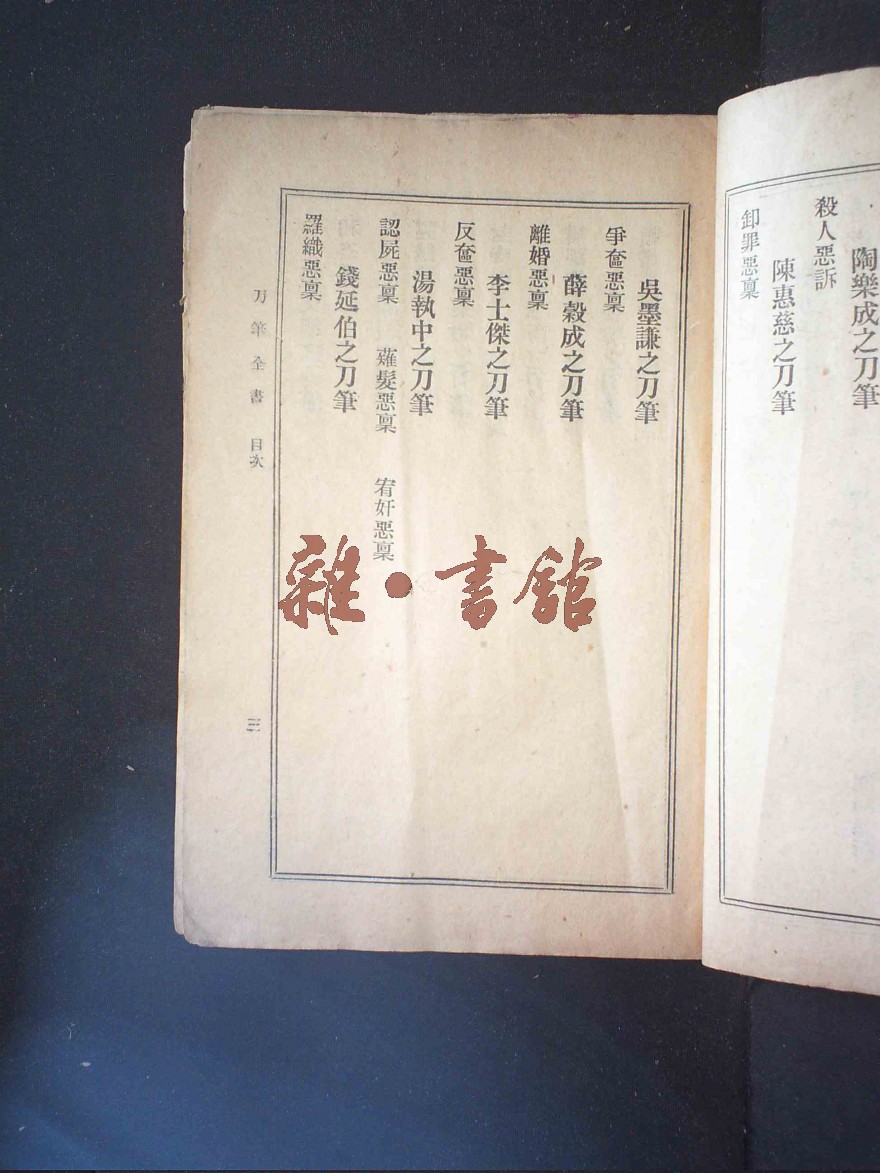 陶樂成之刀筆
殺人惡訴
陳惠慈之刀筆
卸罪惡稟
吳墨謙之刀筆
爭奩惡稟
薛穀成之刀筆
離婚惡稟
李士傑之刀筆
反奩惡稟
湯執中之刀筆
認屍惡稟 薙髮惡稟 宥奸惡稟
錢延伯之刀筆
羅織惡稟
刀筆全書 目次
三
雜·書館